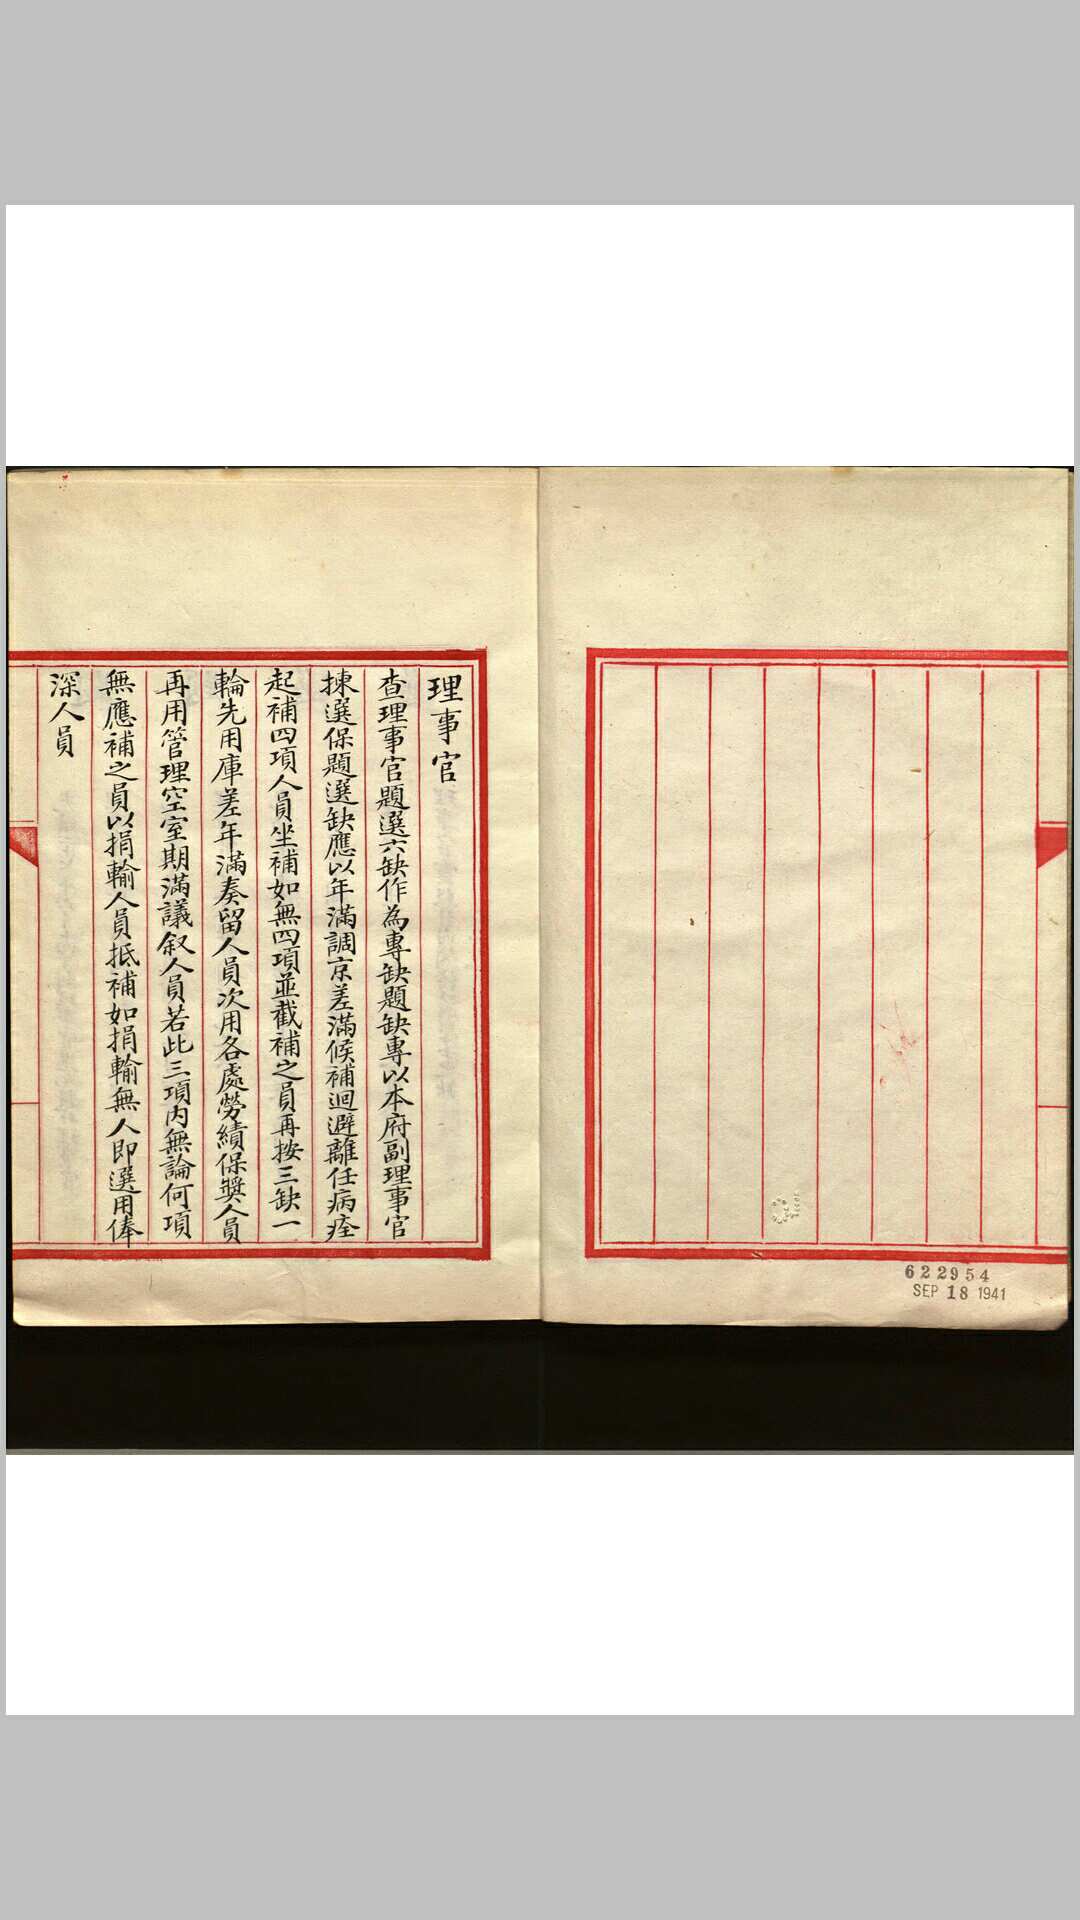 理事官
查理事官題選六缺作為專缺題缺專以本府副理事官
揀選保題選缺應以年滿調京差滿候補迴避離任病痊
起補四項人員坐補如無四項並截補之員再按三缺一
輪先用庫差年滿奏留人員次用各處勞績保獎人員
再用管理空室期滿議叙人員若此三項內無論何項
無應補之員以捐輸人員抵補如捐輸無人即選用俸
深人員
622954
SEP 18 1941